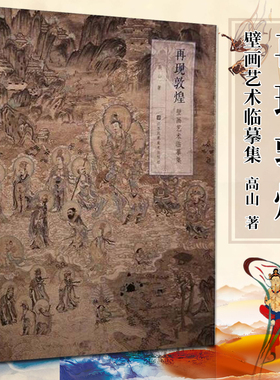 再现敦煌
壁画艺术临摹集
高山 著
再现敦煌
壁画艺术临摹集